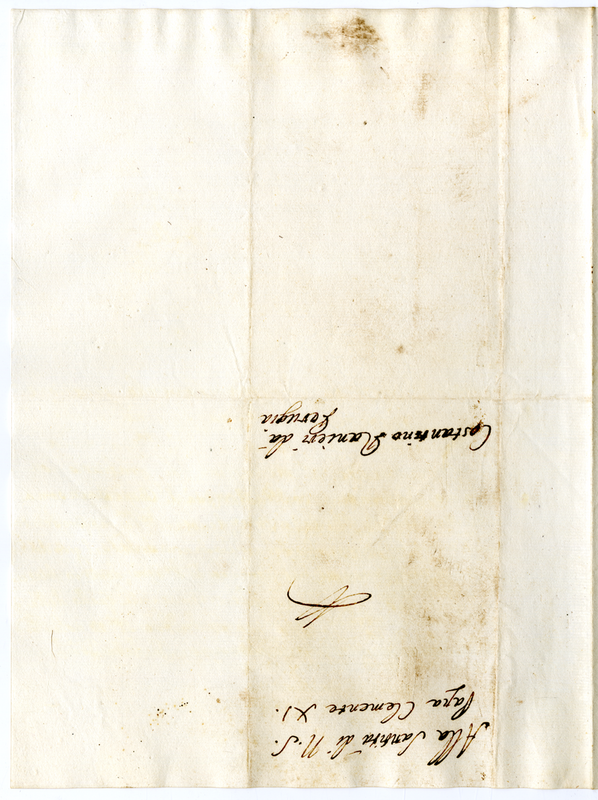 Alla Santità di N. S.
Papa Clemente XI.
Costantino Ranieri da
Perugia